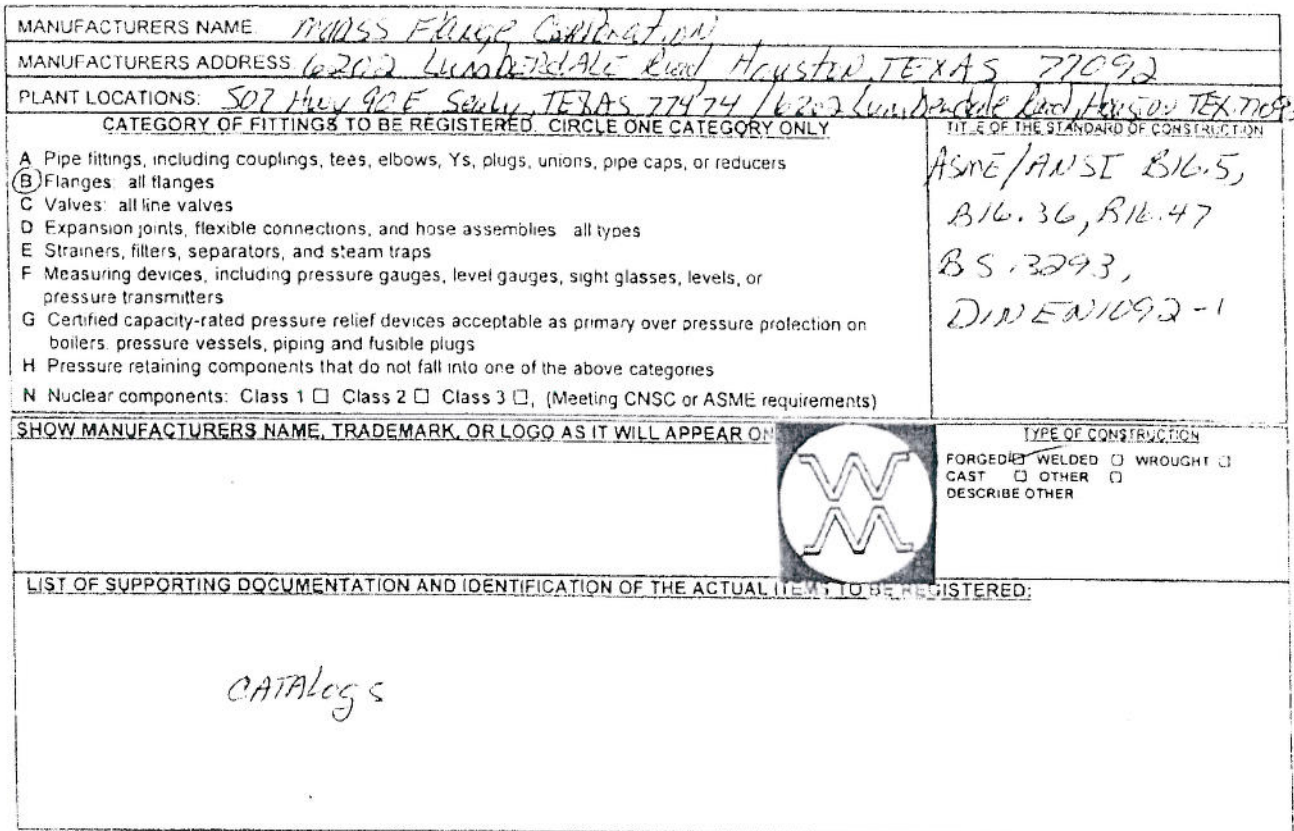 MANUFACTURERS NAME. Maass Flange Corporation
MANUFACTURERS ADDRESS 6202 LumbERdALE Road Houston, TEXAS 77092
PLANT LOCATIONS: 507 Hwy 90 E Sealy, TEXAS 77474 / 6202 Lumberdale Road, Houston TEX. 77092
CATEGORY OF FITTINGS TO BE REGISTERED. CIRCLE ONE CATEGORY ONLY
A Pipe fittings, including couplings, tees, elbows, Ys, plugs, unions, pipe caps, or reducers
B Flanges: all flanges
C Valves: all line valves
D Expansion joints, flexible connections, and hose assemblies all types
E Strainers, filters, separators, and steam traps
F Measuring devices, including pressure gauges, level gauges, sight glasses, levels, or
pressure transmitters
G Certified capacity-rated pressure relief devices acceptable as primary over pressure protection on
boilers. pressure vessels, piping and fusible plugs
H Pressure retaining components that do not fall into one of the above categories
N Nuclear components: Class 1 ☐ Class 2 ☐ Class 3 ☐, (Meeting CNSC or ASME requirements)
TITLE OF THE STANDARD OF CONSTRUCTION
ASME/ANSI B16.5,
B16.36, B16.47
BS.3293,
DIN EN1092-1
SHOW MANUFACTURERS NAME, TRADEMARK, OR LOGO AS IT WILL APPEAR ON
TYPE OF CONSTRUCTION
FORGED ☑ WELDED ☐ WROUGHT ☐
CAST ☐ OTHER ☐
DESCRIBE OTHER
LIST OF SUPPORTING DOCUMENTATION AND IDENTIFICATION OF THE ACTUAL ITEMS TO BE REGISTERED:
CATALogs